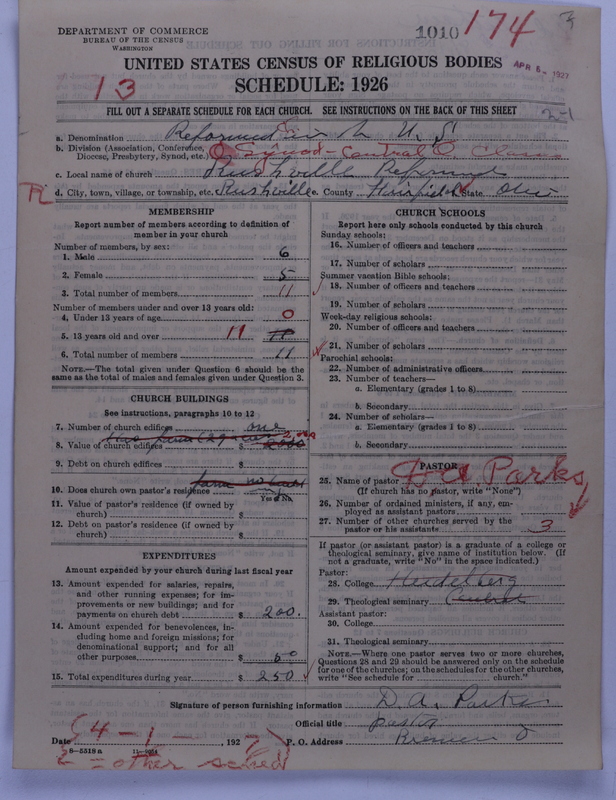 DEPARTMENT OF COMMERCE
BUREAU OF THE CENSUS
WASHINGTON
1010 174
UNITED STATES CENSUS OF RELIGIOUS BODIES
APR 6 - 1927
SCHEDULE: 1926
13
FILL OUT A SEPARATE SCHEDULE FOR EACH CHURCH. SEE INSTRUCTIONS ON THE BACK OF THIS SHEET
a. Denomination Reformed in U. S.
b. Division (Association, Conference, Diocese, Presbytery, Synod, etc.) O Synod - Central O. Classis
c. Local name of church Rushville Reformed
d. City, town, village, or township, etc. Rushville e. County Fairfield f. State Ohio
MEMBERSHIP
Report number of members according to definition of member in your church
Number of members, by sex:
1. Male 6
2. Female 5
3. Total number of members 11
Number of members under and over 13 years old:
4. Under 13 years of age 0
5. 13 years old and over 11 11
6. Total number of members 11
NOTE.—The total given under Question 6 should be
same as the total of males and females given under Question 3.
CHURCH BUILDINGS
See instructions, paragraphs 10 to 12
7. Number of church edifices one
8. Value of church edifices $ 2000
9. Debt on church edifices $
10. Does church own pastor's residence Yes or No
11. Value of pastor's residence (if owned by
church) $
12. Debt on pastor's residence (if owned by
church) $
EXPENDITURES
Amount expended by your church during last fiscal year
13. Amount expended for salaries, repairs,
and other running expenses; for im-
provements or new buildings; and for
payments on church debt $ 200.
14. Amount expended for benevolences, in-
cluding home and foreign missions; for
denominational support; and for all
other purposes $ 50
15. Total expenditures during year $ 250
CHURCH SCHOOLS
Report here only schools conducted by this church
Sunday schools:
16. Number of officers and teachers
17. Number of scholars
Summer vacation Bible schools:
18. Number of officers and teachers
19. Number of scholars
Week-day religious schools:
20. Number of officers and teachers
21. Number of scholars
Parochial schools:
22. Number of administrative officers
23. Number of teachers—
a. Elementary (grades 1 to 8)
b. Secondary
24. Number of scholars—
a. Elementary (grades 1 to 8)
b. Secondary
PASTOR
25. Name of pastor D. A. Parks
(If church has no pastor, write "None")
26. Number of ordained ministers, if any, em-
ployed as assistant pastors
27. Number of other churches served by the
pastor or his assistants 3
If pastor (or assistant pastor) is a graduate of a college or
theological seminary, give name of institution below. (If
not a graduate, write "No" in the space indicated.)
Pastor:
28. College Heidelberg
29. Theological seminary Central
Assistant pastor:
30. College
31. Theological seminary
NOTE.—Where one pastor serves two or more churches,
Questions 28 and 29 should be answered only on the schedule
for one of the churches; on the schedules for the other churches,
write "See schedule for church."
Signature of person furnishing information D. A. Parks
Official title pastor
Date 4-1-, 1927 P. O. Address Bremen O
8-5518 a
= other sched